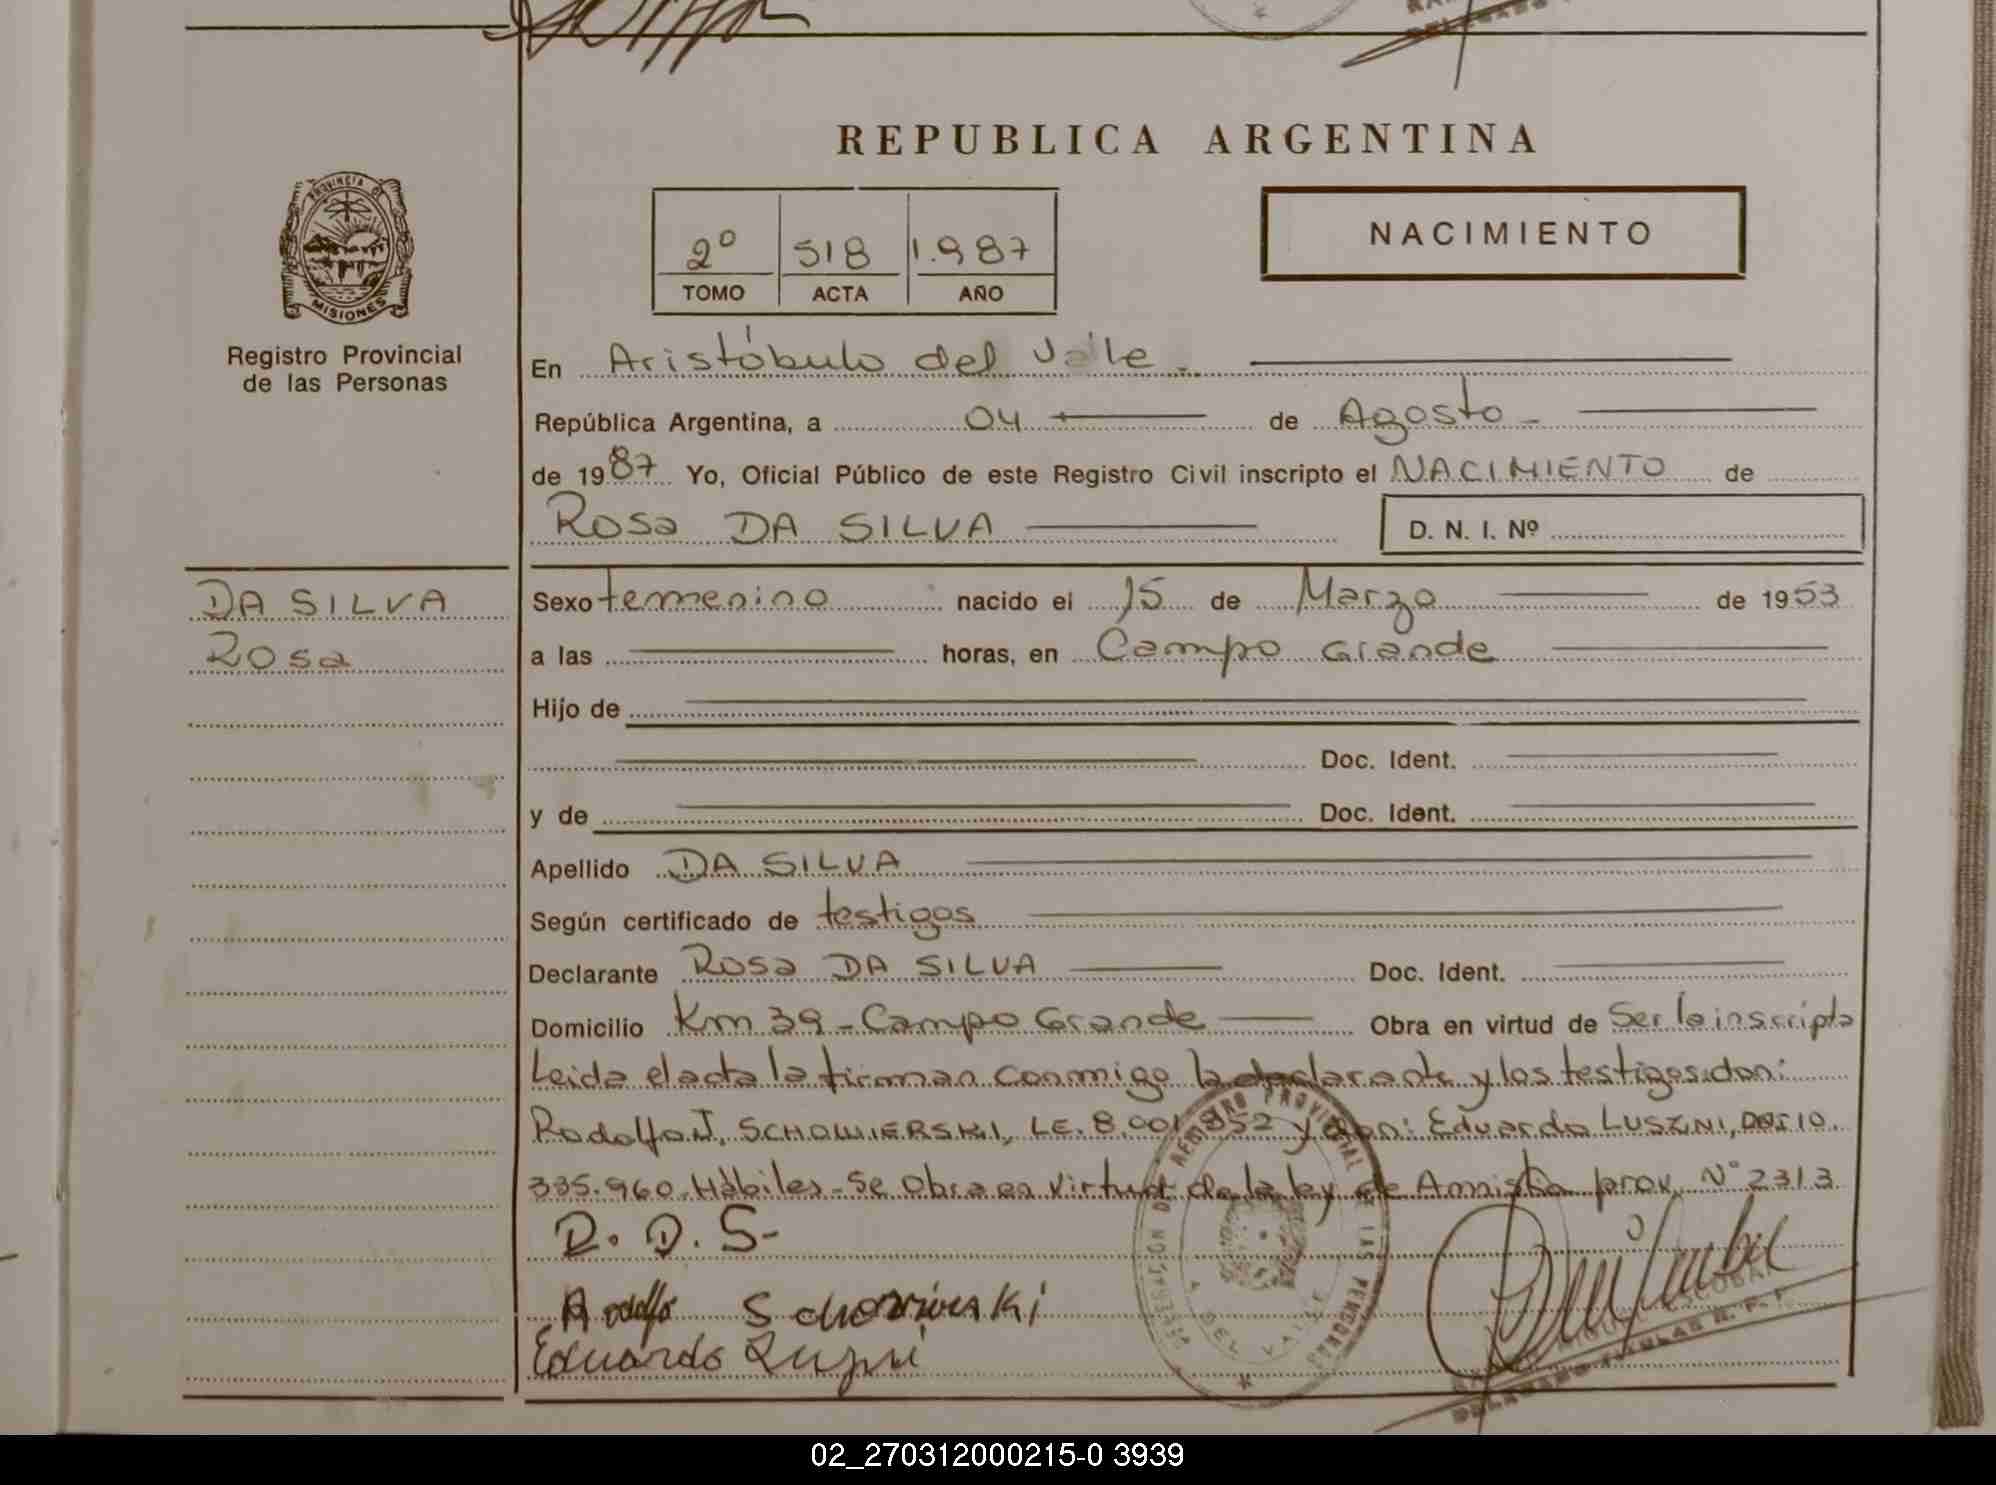 REPUBLICA ARGENTINA
PROVINCIA DE
MISIONES
Registro Provincial
de las Personas
2º 518 1.987
TOMO ACTA AÑO
NACIMIENTO
En Aristóbulo del Valle.
República Argentina, a 04 de Agosto
de 1987 Yo, Oficial Público de este Registro Civil inscripto el NACIMIENTO de
Rosa DA SILVA D. N. I. Nº
DA SILVA
Rosa
Sexo femenino nacido el 15 de Marzo de 1953
a las horas, en Campo Grande
Hijo de
Doc. Ident.
y de Doc. Ident.
Apellido DA SILVA
Según certificado de testigos
Declarante Rosa DA SILVA Doc. Ident.
Domicilio Km 39 - Campo Grande Obra en virtud de Ser la inscripta
Leida el acta la firman conmigo la declarante y los testigos don:
Rodolfo J. SCHOWIERSKI, LE. 8.001.852 y don: Eduardo LUSZNI, 10.
335.960. Hábiles - Se Obra en Virtud de la ley de Amnistia prov. N° 2313
R. D. S-
Rodolfo
Eduardo
REGISTRO PROVINCIAL DE LAS PERSONAS
A. DEL VALLE
02_270312000215-0 3939